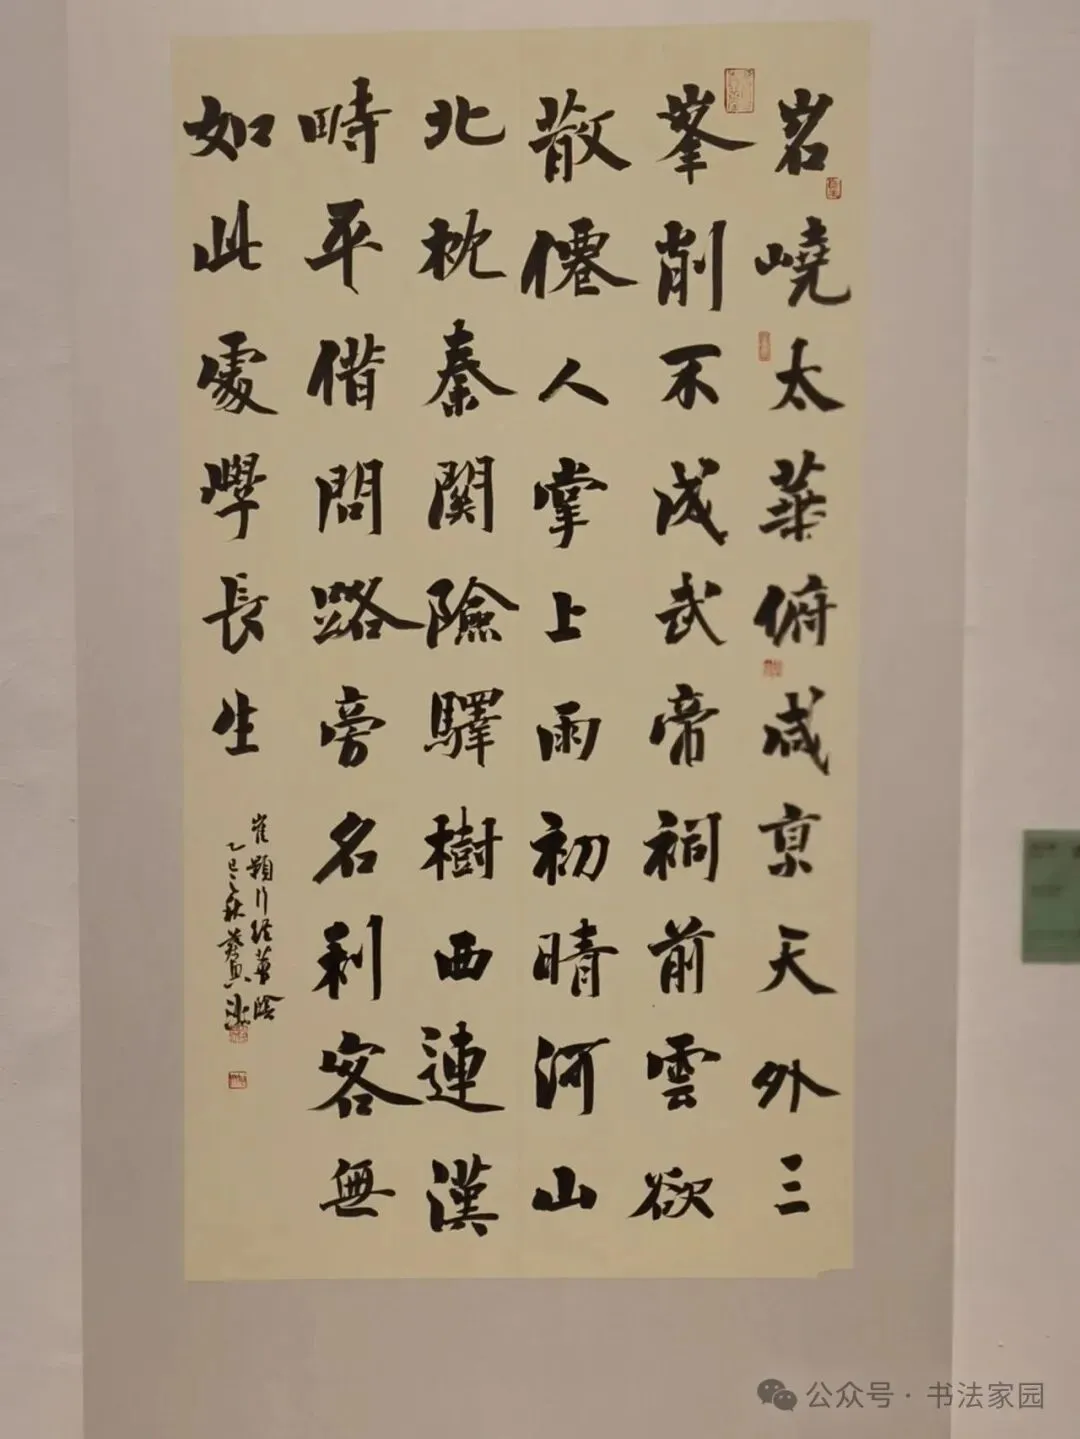 岧嶢太華俯咸京天外三
峯削不成武帝祠前雲欲
散僊人掌上雨初晴河山
北枕秦關險驛樹西連漢
畤平借問路旁名利客無
如此處學長生
崔顥行經華陰
乙巳之秋
公众号·书法家园